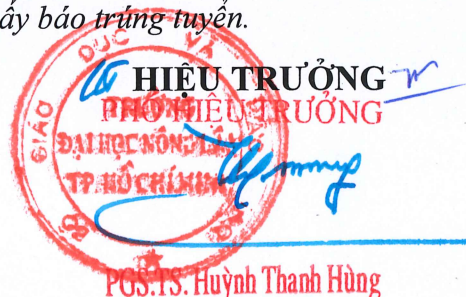 ấy báo trúng tuyển.
HIỆU TRƯỞNG
PHÓ HIỆU TRƯỞNG
GIÁO DỤC VÀ
ĐẠI HỌC NÔNG LÂM
TP. HỒ CHÍ MINH
PGS.TS. Huỳnh Thanh Hùng